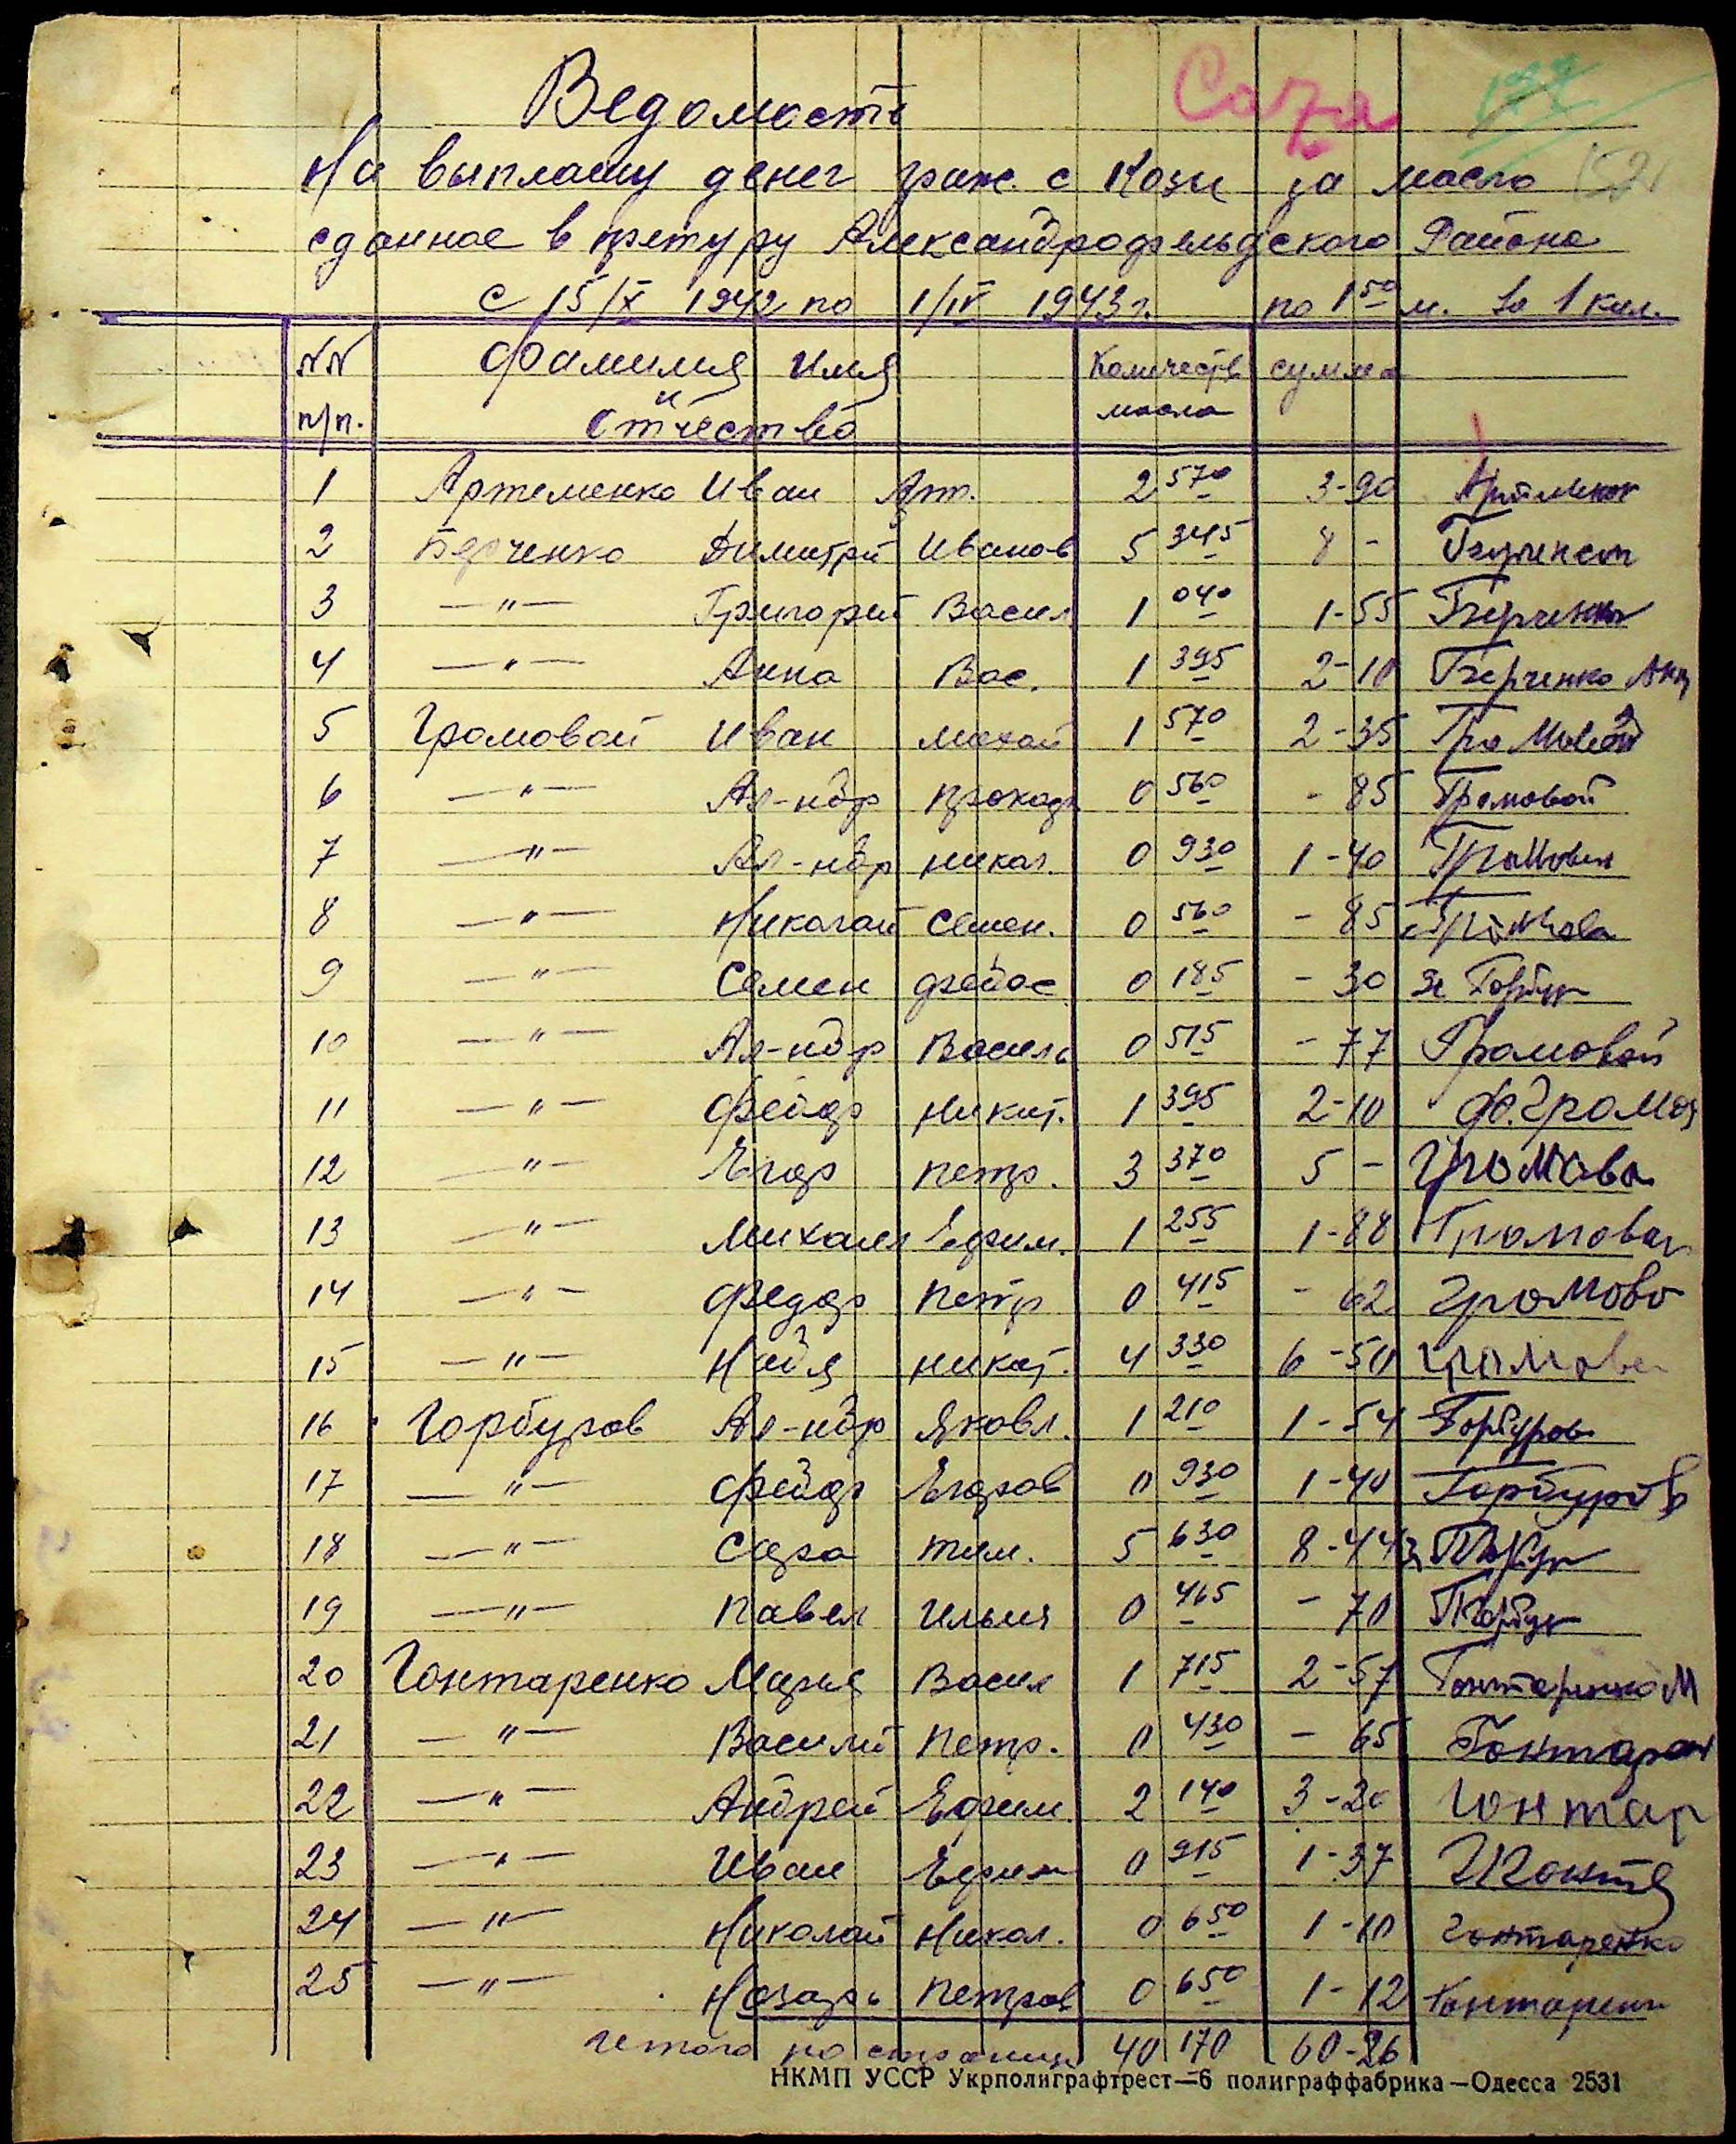 Ведомость
На выплату денег граж. с Козы за масло 152
сданное в претуру Александрофельдского Района
с 15/X 1942 по 1/IV 1943 г. по 1 50 м. за 1 кил.
NN Фамилия Имя Количеств сумма
п/п. и масла
Отчество
1 Артеменко Иван Арт. 2 570 3-90
2 Берченко Димитрий Иванов 5 345 8 - Берченко
3 —"— Григорий Васил 1 040 1-55 Берченко
4 —"— Анна Вас. 1 395 2-10 Берченко Анн
5 Громовой Иван Михай 1 570 2-35 Громовой
6 —"— Ал-ндр 0 560 - 85 Громовой
7 —"— Ал-ндр Никол. 0 930 1-40
8 —"— Николай Семен. 0 560 - 85
9 —"— Семен Федос 0 185 - 30 за Горбур
10 —"— Ал-ндр Василь 0 515 - 77 Громовой
11 —"— Фёдор Никит. 1 395 2-10 Ф. Громов
12 —"— Егор Петр. 3 370 5 - Громова
13 —"— Михаил Ефим. 1 255 1-88 Громовая
14 —"— Федор Петр 0 415 - 62 Громово
15 —"— Надя Никит. 4 330 6-50 Громова
16 Горбуров Ал-ндр Яковл. 1 210 1-54 Горбуров
17 —"— Фёдор Егоров 0 930 1-40 Горбуров
18 —"— Сара Тим. 5 630 8-44
19 —"— Павел Ильич 0 465 - 70 Горбур
20 Гонтаренко Мария Васил 1 715 2-57 Гонтаренко М
21 —"— Василий Петр. 0 430 - 65 Гонтарен
22 —"— Андрей Ефим. 2 140 3-20 Гонтар
23 —"— Иван Ефим 0 915 1-37
24 —"— Николай Никол. 0 650 1-10 Гонтаренко
25 —"— Назарь Петров 0 650 1-12 Гонтаренк
итого по странице 40 170 60-26
НКМП УССР Укрполиграфтрест—6 полиграффабрика—Одесса 2531